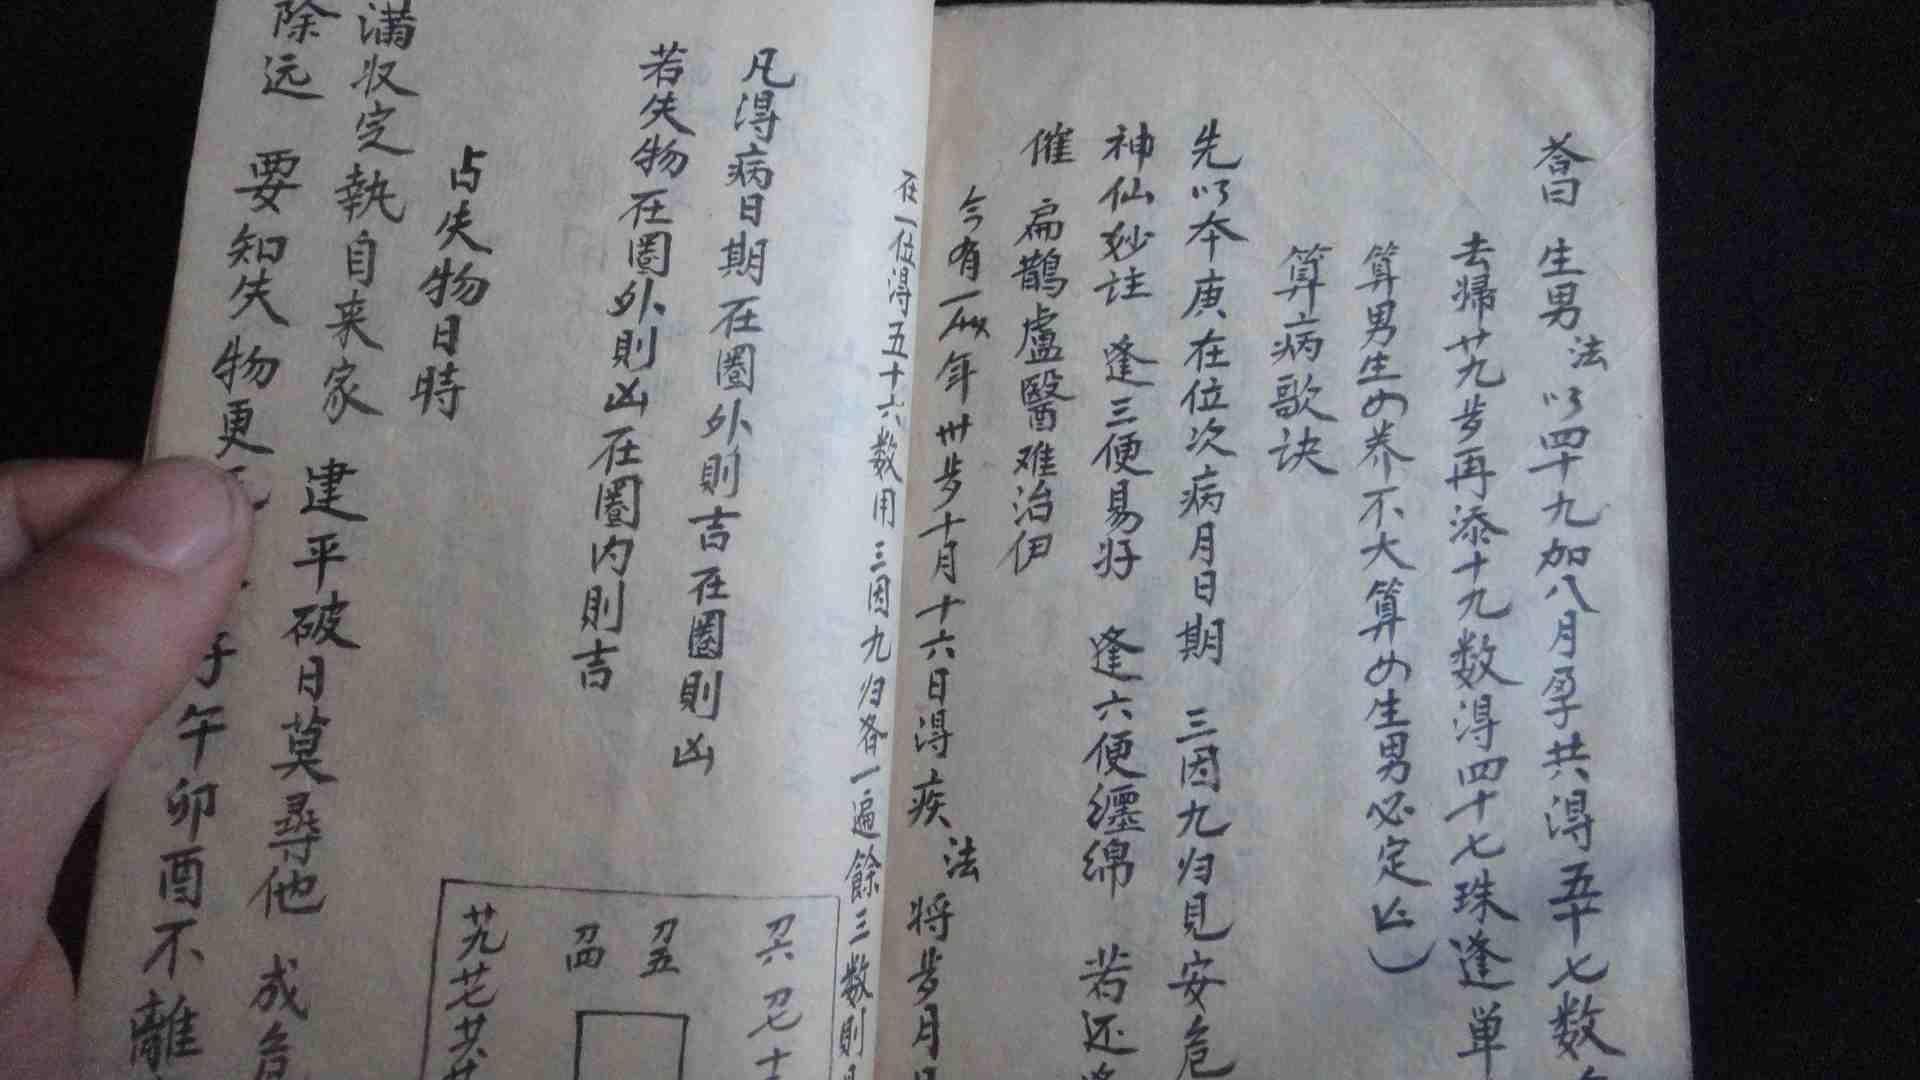 荅曰 生男 法 以四十九加八月孕共得五十七数
去帰廿九步再添十九数得四十七珠逢単
算男生女养不大算女生男必定止
算病歌诀
先以本庚在位次病月日期 三因九归見安危
神仙妙註 逢三便易好 逢六便纒綿 若还
催 扁鵲盧醫难治伊
今有一 年卅步十月十六日得疾 法 将步月
在一位得五十六数用三因九归各一遍餘三数則
凡得病日期在圏外則吉在圏則凶
若失物在圏外則凶在圏内則吉
占失物日時
满収定執自来家 建平破日莫尋他 成危
除远 要知失物更 子午卯酉不離
廿九 廿七 廿